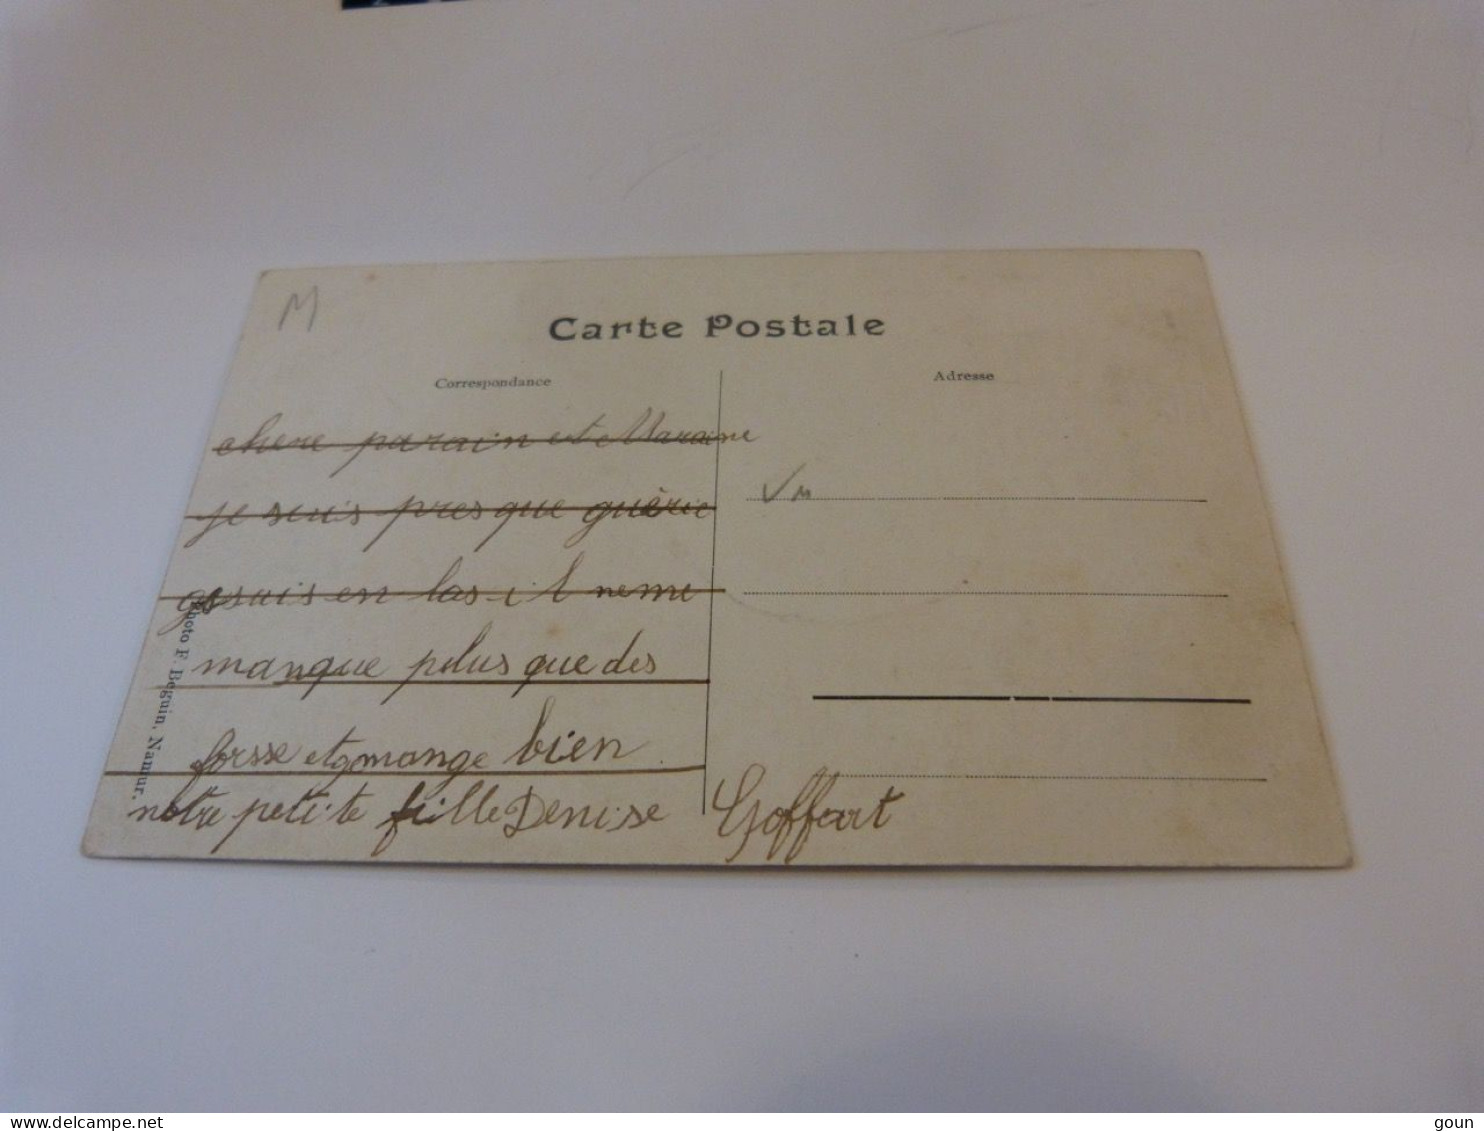 M
Carte Postale
Correspondance
Adresse
chere parain et Maraine
je suis pres que guèrie
suis en las il ne me
manque pelus que des
forsse et mange bien
notre petite fille Denise Goffart
Photo F. Beguin, Namur.
delcampe.net
goun